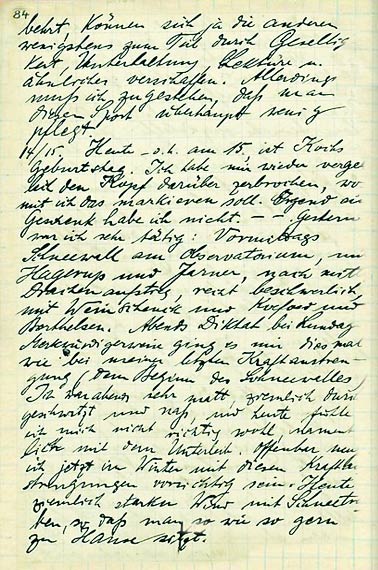 84
behrt, können sich ja die anderen
wenigstens zum Teil durch Gesellig
keit, Unterhaltung, Lektüre u.
ähnliches verschaffen. Allerdings
muß ich zugestehen, daß man
diesen Sport überhaupt wenig
pflegt.
14/15. Heute - d.h. am 15, ist Kochs
Geburtstag. Ich habe mir wieder verge
lich den Kopf darüber zerbrochen, wo
mit ich das markieren soll. Irgend ein
Geschenk habe ich nicht. - - Gestern
war ich sehr tätig: Vormittags
Schneewall am Observatorium, mit
Hagerup und Jarner, nachmitt
Drachenaufstieg, recht beschwerlich,
mit Weinschenck und Koefoed und
Berthelsen. Abends Diktat bei Lundag
Merkwürdigerweise ging es mir dies mal
wie bei meiner letzten Kraftanstren-
gung (dem Beginn des Schneewalles)
Ich war abends sehr matt, ziemlich durch
geschwitzt und naß, und heute fühle
ich mich nicht richtig wohl, nament
lich mit dem Unterleib. Offenbar muß
ich jetzt im Winter mit diesen Kraftan
strengungen vorsichtig sein. Heute
ziemlich starker Wind mit Schneetrei
ben, so daß man so wie so gern
zu Hause sitzt.